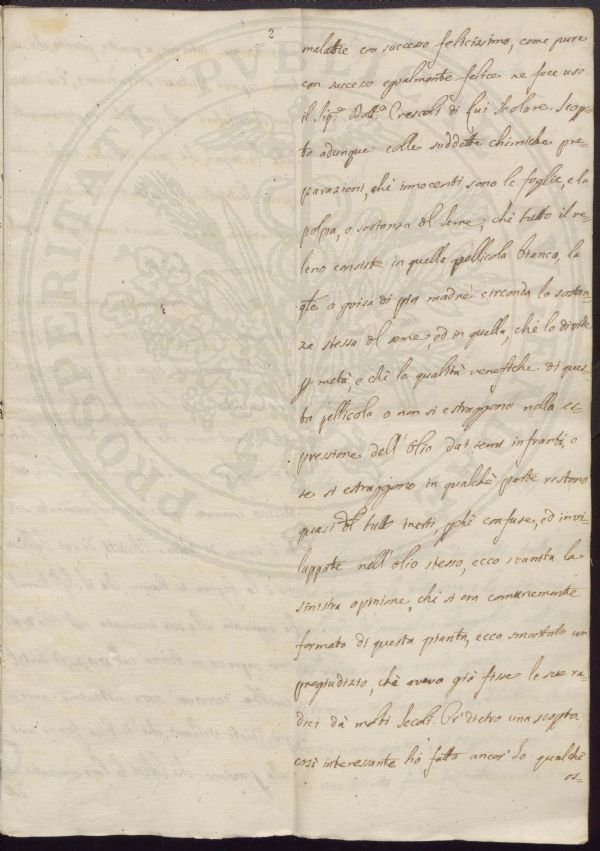 2
malattie con successo felicissimo, come pure
con successo egualmente felice ne fece uso
il Sig.r Dott.r Crescoli di lui Scolare. Scoper-
to adunque colle suddette chimiche pre-
parazioni, chè innocenti sono le foglie, e la
polpa, o sostanza del seme, chè tutto il ve-
leno consiste in quella pellicola bianca, la
qle a guisa di pia madre circonda la sostan-
za stessa del seme, ed in quella, chè lo divide
per metà, e chè le qualità venefiche di ques-
ta pellicola o non si estraggono nella es-
pressione dell'Olio dai semi infranti, o
se si estraggono in qualchè parte restono
quasi del tutto inerti, pchè confuse, ed invi-
luppate nell'olio stesso, ecco svanita la
sinistra opinione, chè si era comunemente
formata di questa pianta, ecco smontato un
pregiudizio, chè aveva già fisse le sue ra-
dici dà molti Secoli. Dietro una scopta
così interessante hò fatto ancor'Io qualchè
os-
PROSPERITATI PVBLICAE